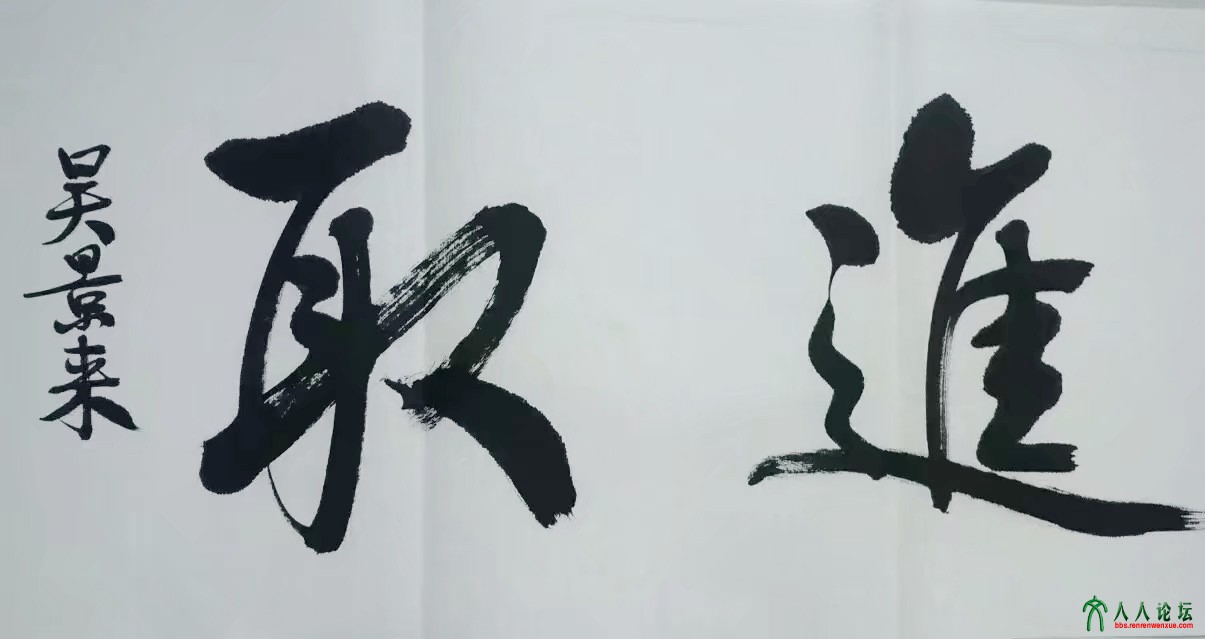 進取
吴景来
人人论坛
bbs.renrenwenxue.com